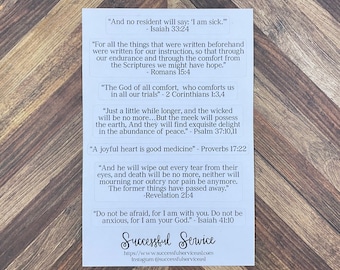 "And no resident will say: 'I am sick.'"
- Isaiah 33:24
"For all the things that were written beforehand
were written for our instruction, so that through
our endurance and through the comfort from
the Scriptures we might have hope."
- Romans 15:4
"The God of all comfort, who comforts us
in all our trials" - 2 Corinthians 1:3,4
"Just a little while longer, and the wicked
will be no more...But the meek will possess
the earth, And they will find exquisite delight
in the abundance of peace." - Psalm 37:10,11
"A joyful heart is good medicine" - Proverbs 17:22
"And he will wipe out every tear from their
eyes, and death will be no more, neither will
mourning nor outcry nor pain be anymore.
The former things have passed away."
-Revelation 21:4
"Do not be afraid, for I am with you. Do not be
anxious, for I am your God." - Isaiah 41:10
Successful Service